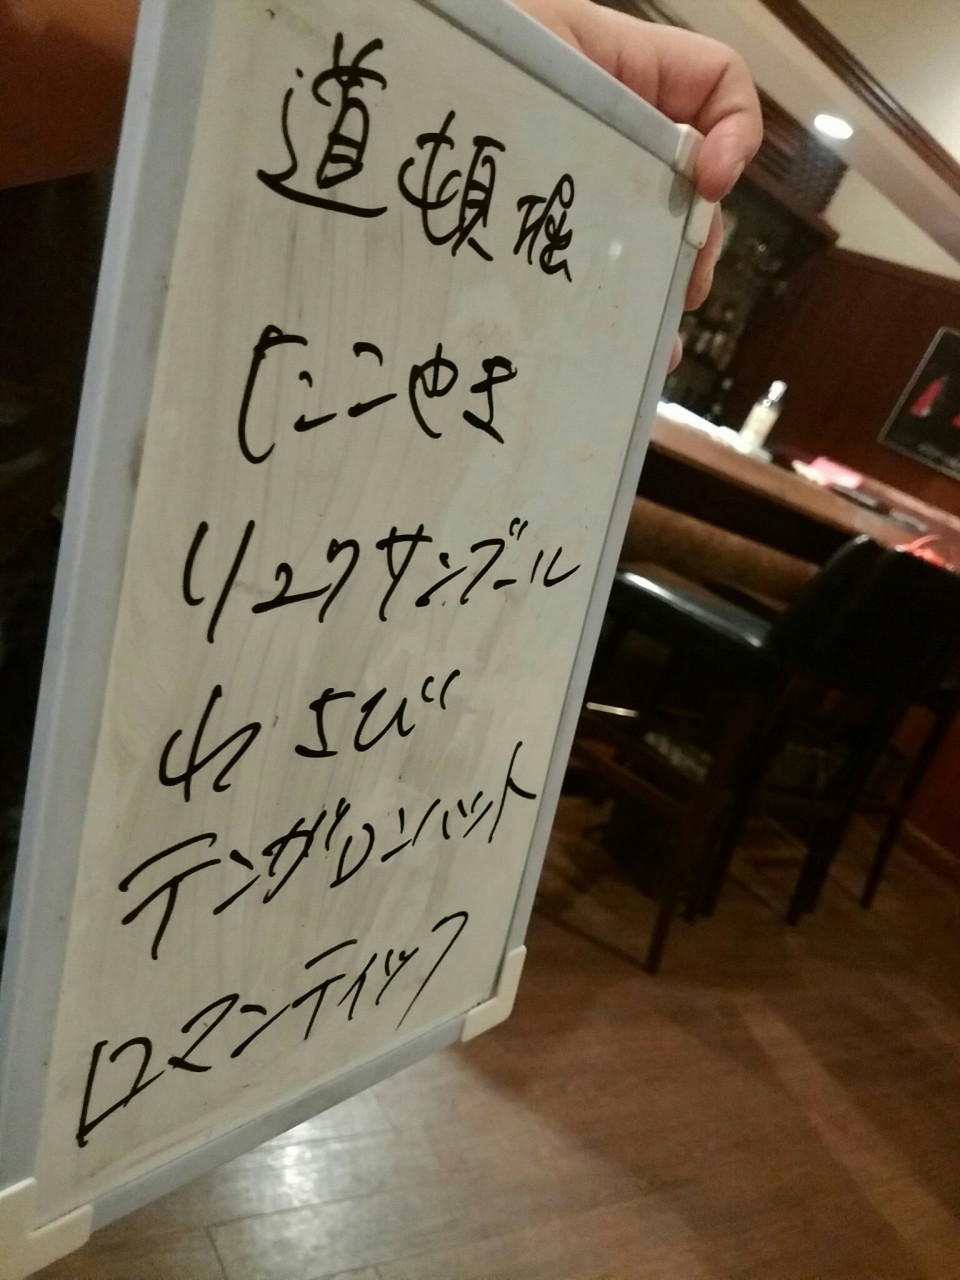 道頓堀
たこやき
リュクサンブール
わさび
テンガロンハット
ロマンティック